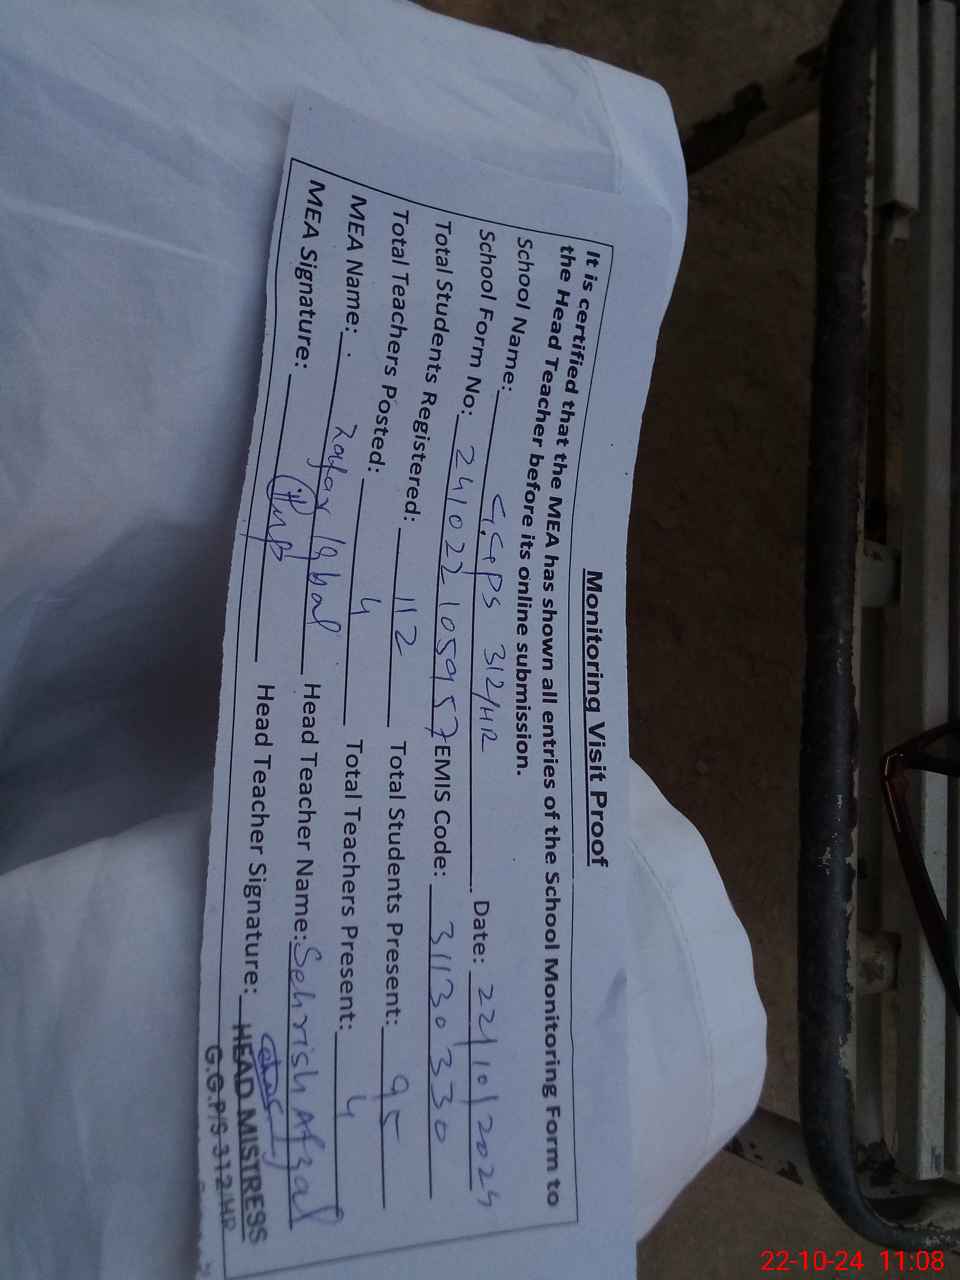 Monitoring Visit Proof
It is certified that the MEA has shown all entries of the School Monitoring Form to
the Head Teacher before its online submission.
School Name: GGPS 312/HR Date: 22/10/2024
School Form No: 241022105957 EMIS Code: 31130330
Total Students Registered: 112 Total Students Present: 95
Total Teachers Posted: 4 Total Teachers Present: 4
MEA Name: Zafar Iqbal Head Teacher Name: Sehrish Afzal
MEA Signature: Head Teacher Signature:
HEAD MISTRESS
G.G.P/S 312/HR
22-10-24 11:08